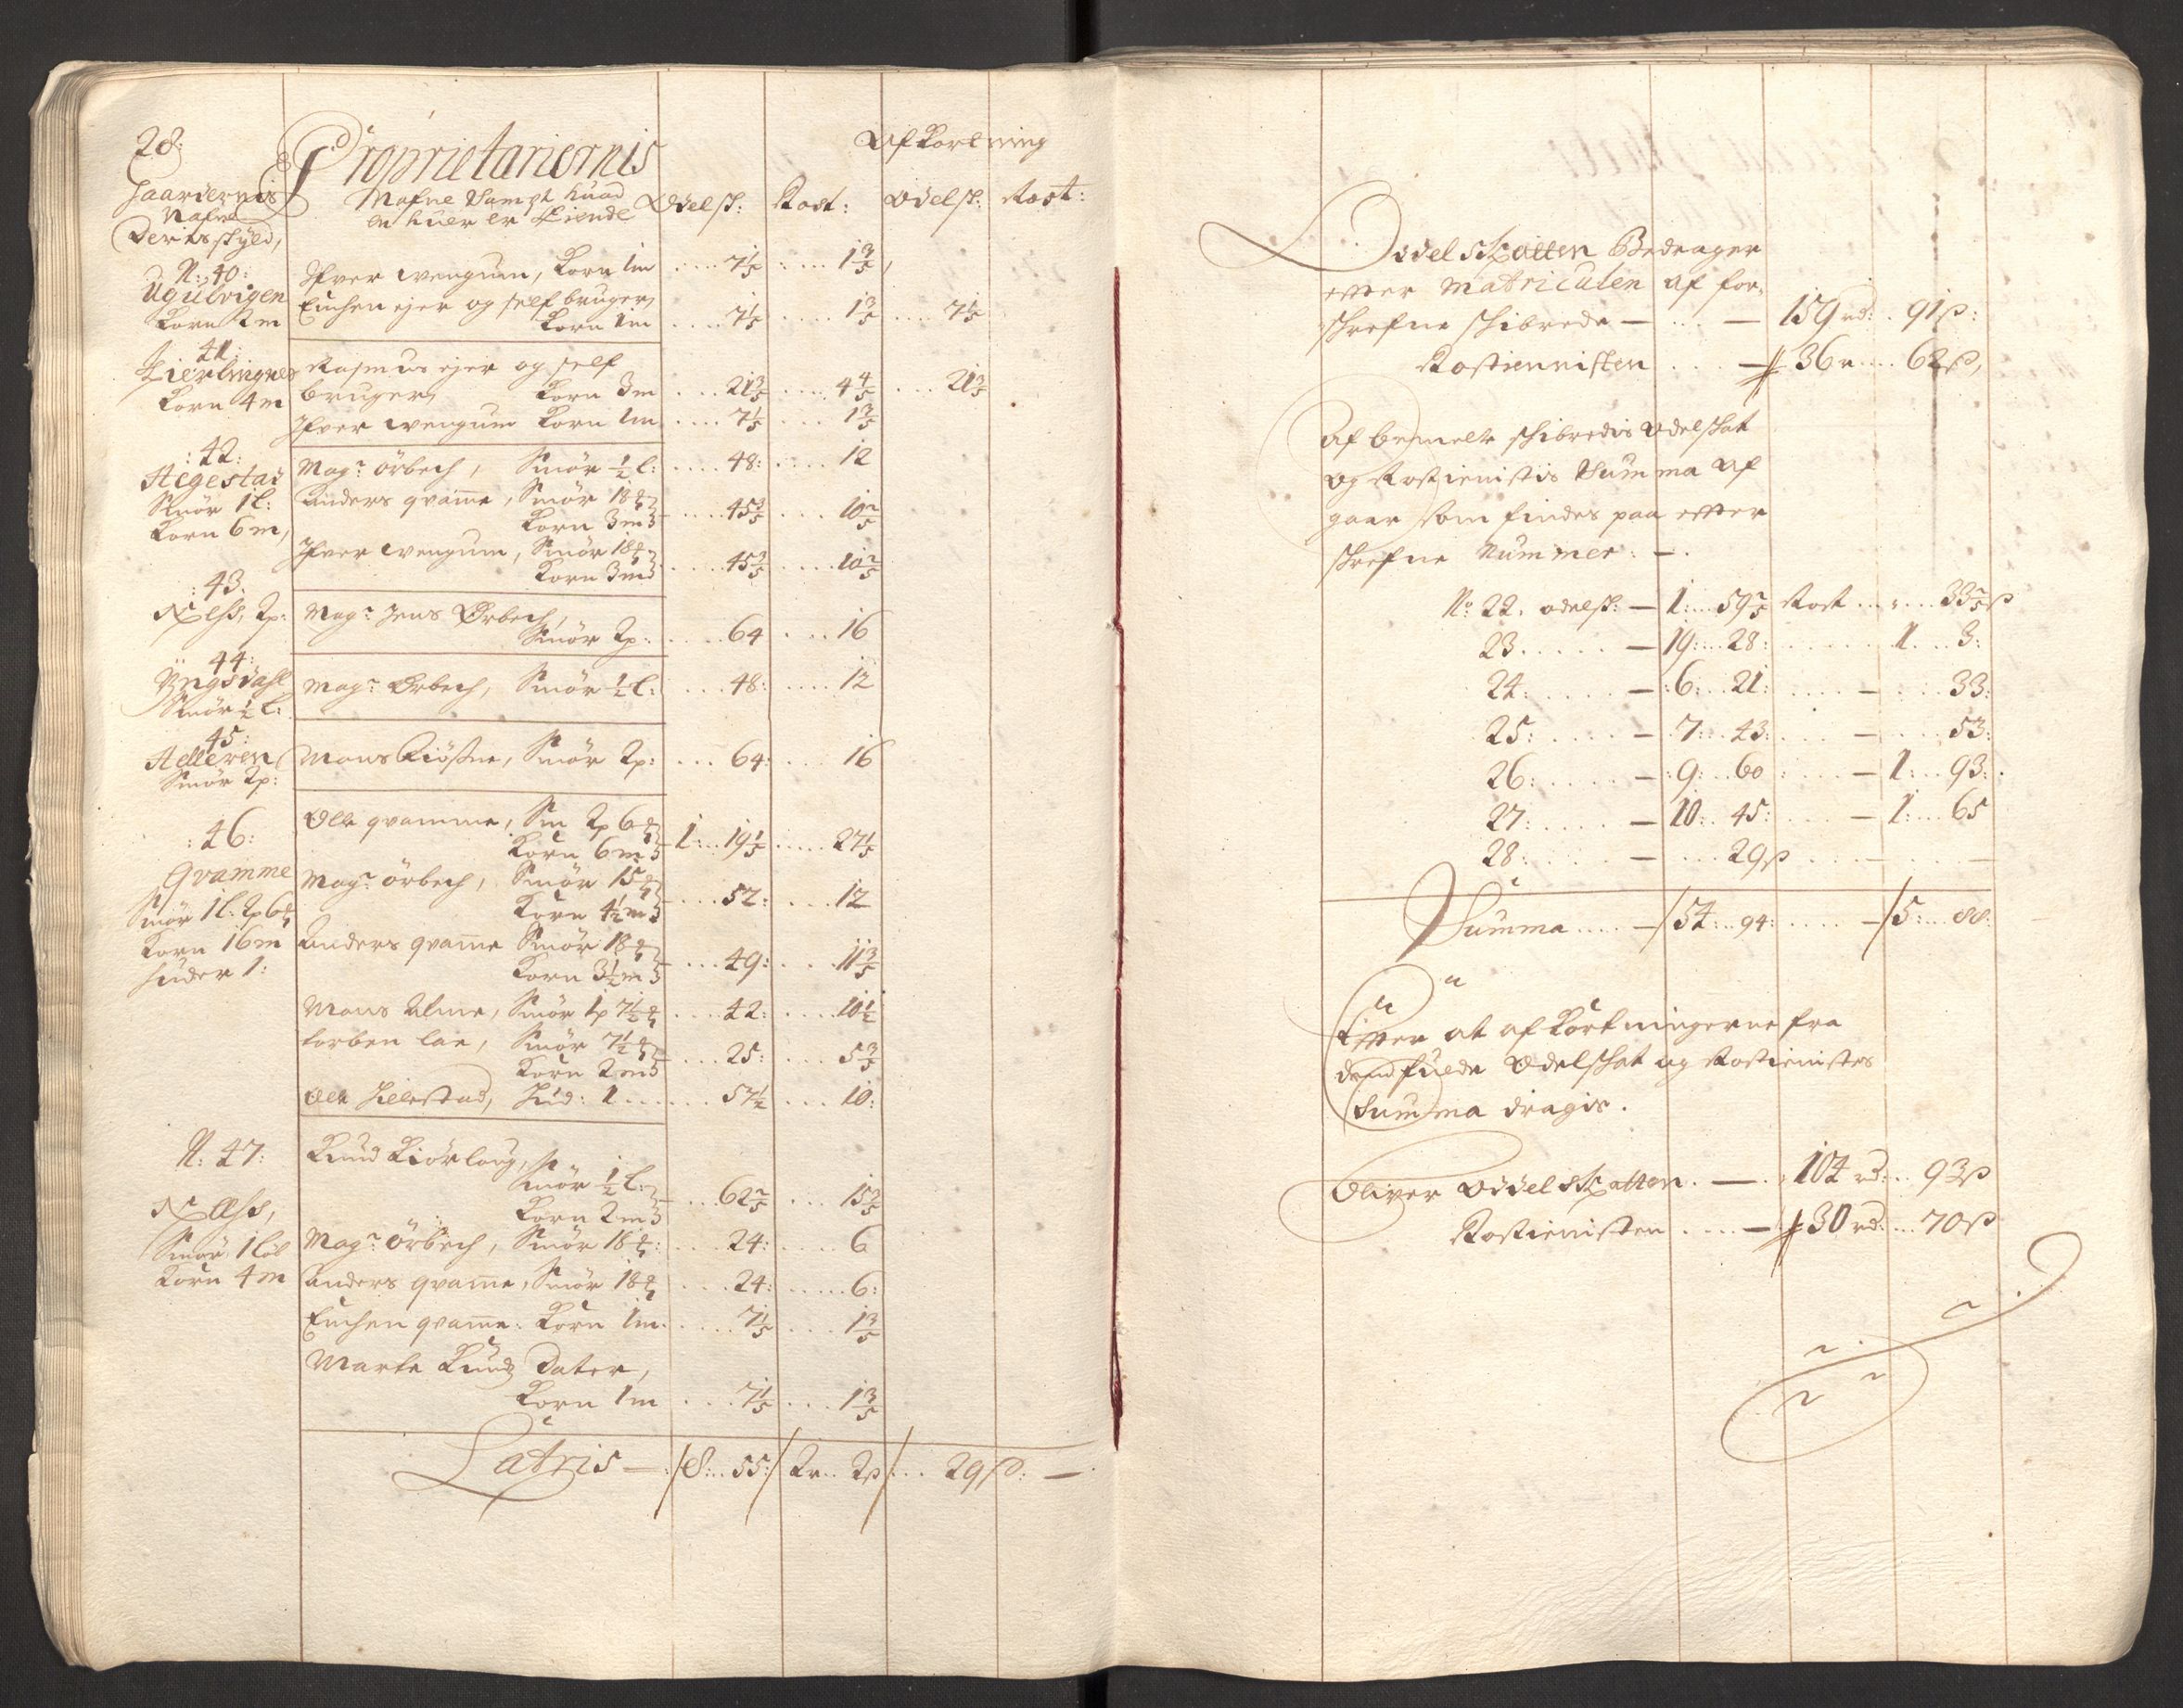 28.
Proprietariernis
Afkortning
Gaardernis
Nafne
Deris schyld,
Nafne Sampt huad
en huer er Eiende
Odelsk: Rost: Odelsk: Rost:
N: 40:
Ugulvigen
Korn 2m
Ifver wengum, Korn 1m .... 7 1/5 .... 1 3/5
Euchen ejer og self bruger,
Korn 1m .... 7 1/5 .... 1 3/5 .... 7 1/5
41:
Korn 4m
Rasmus ejer og self
bruger, Korn 3m ... 21 3/5 .... 4 4/5 ... 21 3/5
Ifver wengum Korn 1m .... 7 1/5 .... 1 3/5
:42:
Hegestad
Smör 1l:
Korn 6m,
Magr örbech, Smör 1/2 l: .... 48: .... 12
Anders qvame, Smör 18
Korn 3m .... 45 3/5 ... 10 2/5
Ifver wengum, Smör 18
Korn 3m .... 45 3/5 .... 10 2/5
:43.
Næss, 2p:
Magr Jens Örbech,
Smör 2p: .... 64 .... 16
44:
Yngsdahl
Smör 1/2 l:
Magr Örbech, Smör 1/2 l: ... 48: .... 12
45:
Helleren
Smör 2p:
Mons Kiösne, Smör 2p: ... 64: .... 16
:46:
Qvamme
Smör 1l: 2p 6
Korn 16m
Huder 1:
Ole qvamme, Sm 2p 6
Korn 6m 1: .. 19 1/5 ..... 27 1/5
Magr örbech, Smör 15
Korn 4 1/2 m ... 52: ... 12
Anders qvame Smör 18
Korn 3 1/2 m ... 49: .... 11 3/5
Mons Alme, Smör 1p 7 1/2 .... 42: .... 10 1/2
torben lae, Smör 7 1/2
Korn 2m ... 25: .... 5 3/5
Ole Hillestad, Hud: 1 ..... 57 1/2 ... 10:
N: 47:
Næss,
Smör 1 löb
Korn 4m
Knud Kiörlaug,
Smör 1/2 l:
Korn 2m ... 62 2/5 ... 15 2/5
Magr örbech, Smör 18: .... 24: ..... 6
Anders qvame, Smör 18 ... 24: ..... 6:
Euchen qvame: Korn 1m. .... 7 1/5 .... 1 3/5
Marte Knuds Dater,
Korn 1m .... 7 1/5 .... 1 3/5
Latris — 8: .. 55: 2r .. 2s ... 29s: —
Odel Skatten Bedrager
effter Matriculen af for,
schrefne schibrede — ... — 159 rd: . 91s:
Rostiennisten .... — 36r .... 62s,
Af bemelte schibredis Odelschat
og Rostienistis Summa Af
gaar som findes paa effter
schrefne Nummer: —.
No 22. odelsk: — 1: ... 59 2/5 Rost ... „ ... 33 2/5 s
23 ..... — 19: ... 28: ...... 1 ... 3:
24: ..... — :6: .. 21: ..... — ... 33:
25: ..... — .7: .. 43: ..... — ... 53:
26: ..... — :9: .. 60: ..... — 1: .. 93:
27: ..... — 10: .. 45: ..... — 1: ... 65
28: ..... — ... 29s ..... — ... —
Summa .... — 54: .. 94: ..... — 5: ... 88:
Effter at afkortningerne fra
dend fulde Odelschat og Rostienistes
Summa dragis.
Bliver Odel Skatten. —. 104 rd: .. 93s
Rostienisten .... — 30 rd: ... 70s